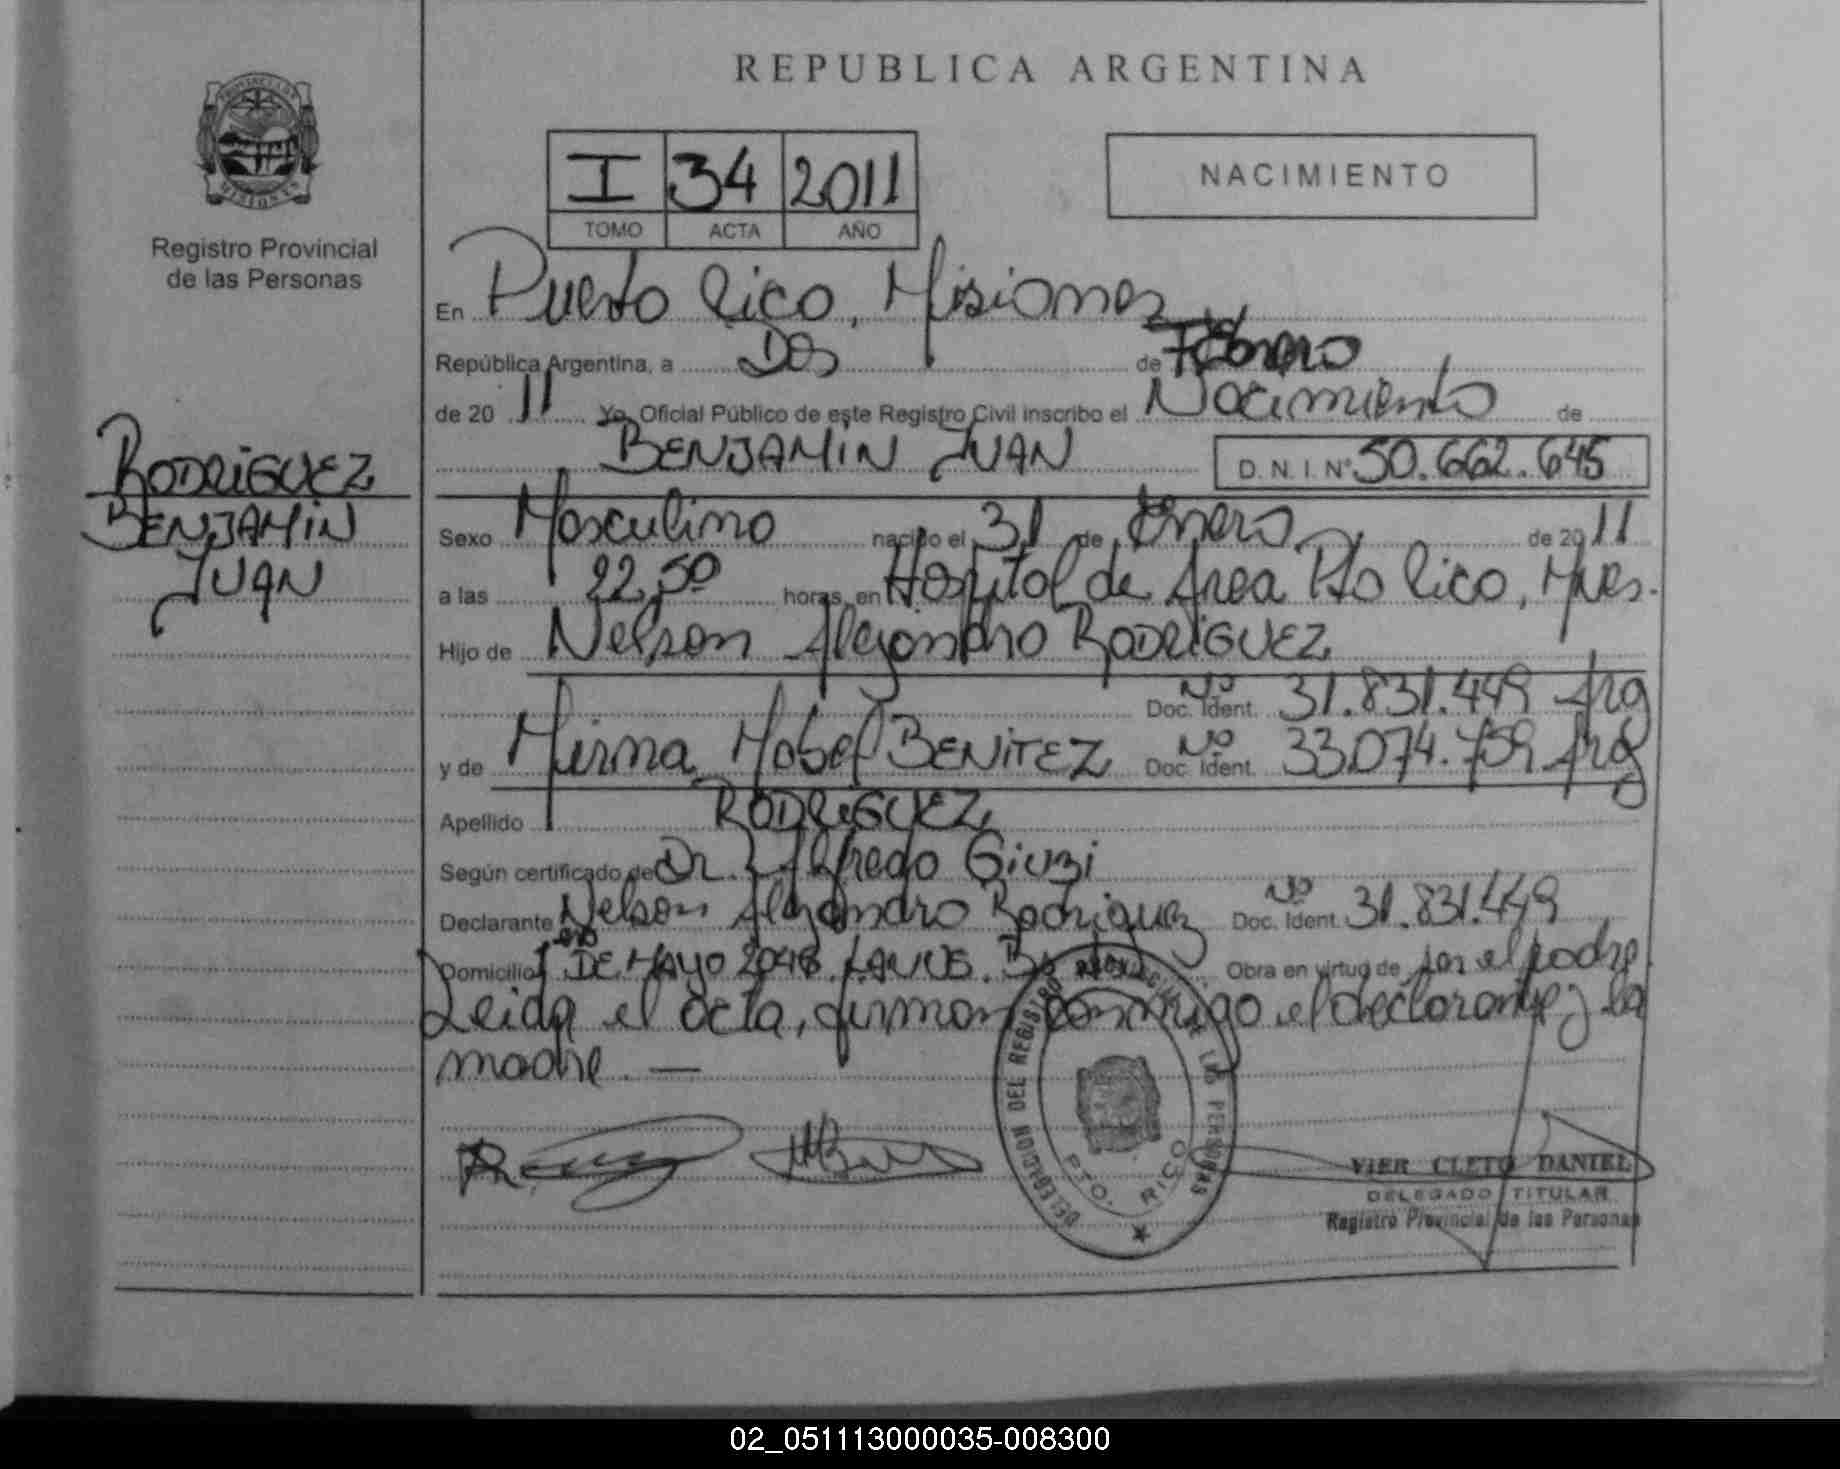 REPUBLICA ARGENTINA
I 34 2011
TOMO ACTA AÑO
NACIMIENTO
PROVINCIA DE
MISIONES
Registro Provincial
de las Personas
RODRIGUEZ
BENJAMIN
JUAN
En Puerto Rico, Misiones
República Argentina, a Dos de Febrero
de 20 11 Yo, Oficial Público de este Registro Civil inscribo el Nacimiento de
BENJAMIN JUAN D.N.I. Nº 50.662.645
Sexo Masculino nacido el 31 de Enero de 20 11
a las 22,50 horas, en Hospital de Area Pto Rico, Mnes.
Hijo de Nelson Alejandro RODRIGUEZ
Doc. Ident. Nº 31.831.449 Arg
y de Mirna Mabel BENITEZ Doc. Ident. Nº 33.074.759 Arg
Apellido RODRIGUEZ
Según certificado de Dr. Alfredo Giuzi
Declarante Nelson Alejandro Rodriguez Doc. Ident. Nº 31.831.449
Domicilio 1ero DE MAYO 2048 LANUS Bs As Obra en virtud de ser el padre
Leida el acta, firman conmigo el declarante y la
madre. —
DELEGACION DEL REGISTRO PROVINCIAL DE LAS PERSONAS
PTO. RICO
VIER CLETO DANIEL
DELEGADO TITULAR
Registro Provincial de las Personas
02_051113000035-008300